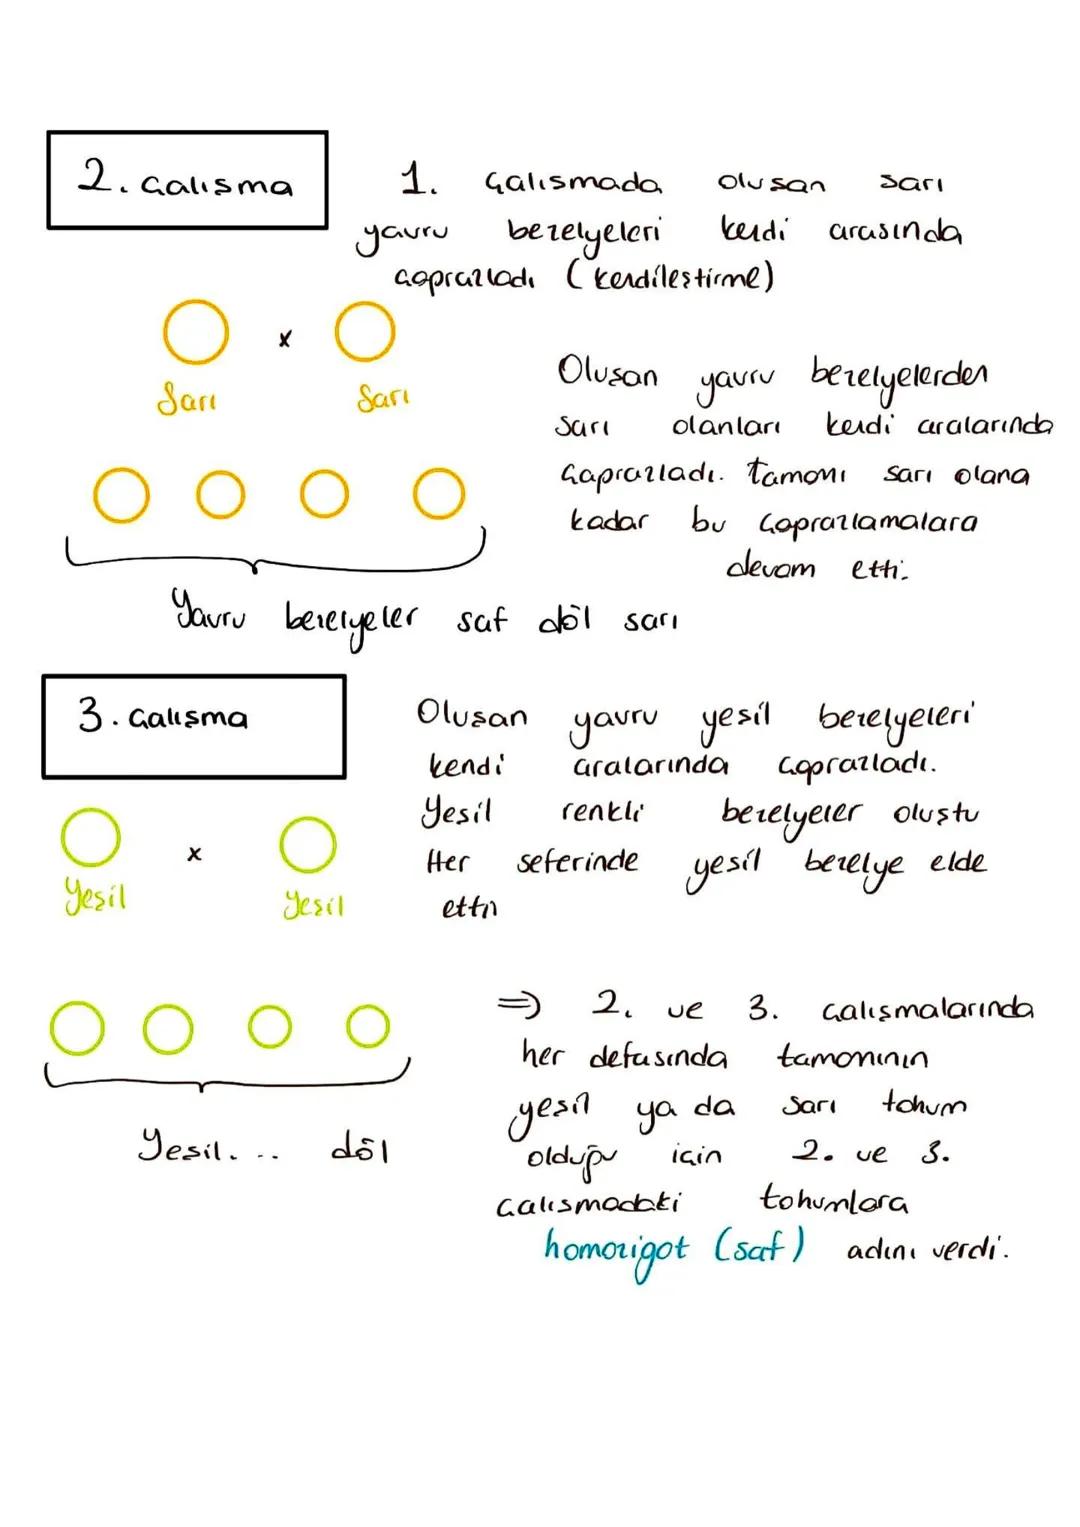 2. Çalışma
1. Çalışmada oluşan sarı
yavru bezelyeleri kendi arasında
çaprazladı (kendileştirme)
x
Sarı Sarı
Oluşan yavru bezelyelerden
sarı olanları kendi aralarında
çaprazladı. tamamı sarı olana
kadar bu çaprazlamalara
devam etti.
Yavru bezelyeler saf döl sarı
3. Çalışma
Oluşan yavru yeşil bezelyeleri
kendi aralarında çaprazladı.
Yeşil renkli bezelyeler oluştu
Her seferinde yeşil bezelye elde
etti
x
Yeşil Yeşil
=> 2. ve 3. çalışmalarında
her defasında tamamının
yeşil ya da sarı tohum
olduğu için 2. ve 3.
çalışmadaki tohumlara
homozigot (saf) adını verdi.
Yeşil... döl